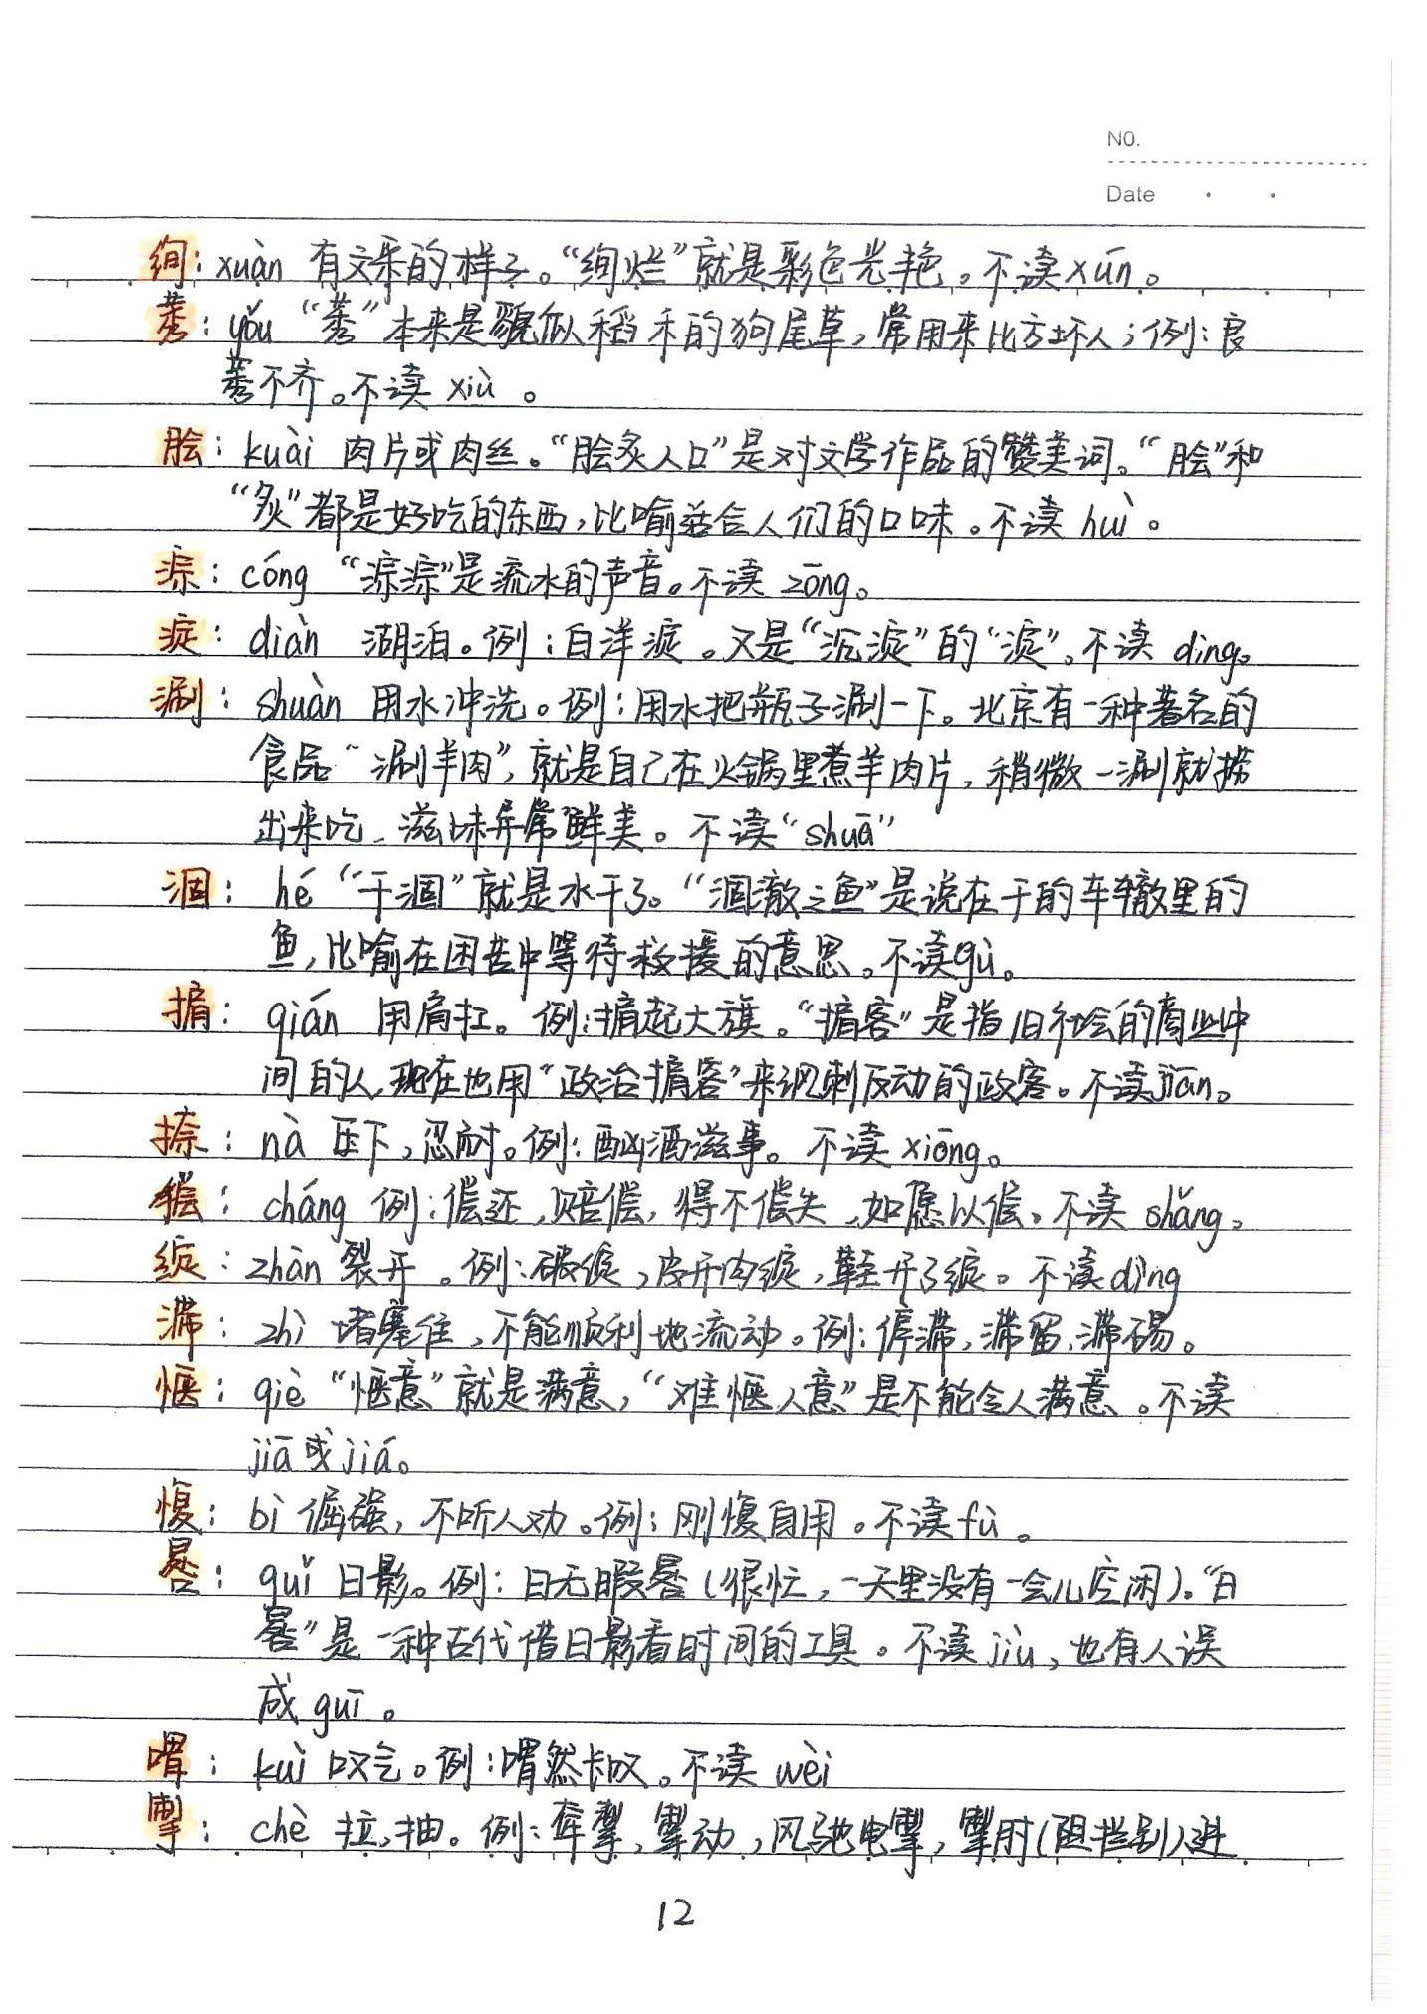 NO.
Date
绚：xuàn 有文采的样子。“绚烂”就是彩色光艳。不读xún。
莠：yǒu “莠”本来是貌似稻禾的狗尾草，常用来比方坏人；例：良
莠不齐。不读 xiù 。
脍：kuài 肉片或肉丝。“脍炙人口”是对文学作品的赞美词。“脍”和
“炙”都是好吃的东西，比喻适合人们的口味。不读 huì 。
淙：cóng “淙淙”是流水的声音。不读 zōng。
淀：diàn 湖泊。例：白洋淀。又是“沉淀”的“淀”。不读 dìng。
涮：shuàn 用水冲洗。例：用水把瓶子涮一下。北京有一种著名的
食品“涮羊肉”，就是自己在火锅里煮羊肉片，稍微一涮就捞
出来吃，滋味异常鲜美。不读“shuā”
涸：hé “干涸”就是水干了。“涸澈之鱼”是说在干的车辙里的
鱼，比喻在困苦中等待救援的意思。不读gù。
掮：qián 用肩扛。例：掮起大旗。“掮客”是指旧社会的商业中
间的人，现在也用“政治掮客”来讽刺反动的政客。不读jiān。
捺：nà 压下，忍耐。例：酗酒滋事。不读 xiōng。
偿：cháng 例：偿还，赔偿，得不偿失，如愿以偿。不读 shǎng。
绽：zhàn 裂开。例：破绽，皮开肉绽，鞋开了绽。不读dìng
滞：zhì 堵塞住，不能顺利地流动。例：停滞，滞留，滞碍。
惬：qiè “惬意”就是满意，“难惬人意”是不能令人满意。不读
jiā或jiá。
愎：bì 倔强，不听人劝。例：刚愎自用。不读fù。
晷：guǐ 日影。例：日无暇晷（很忙，一天里没有一会儿空闲）。“日
晷”是一种古代借日影看时间的工具。不读jiù，也有人误
成guī。
喟：kuì 叹气。例：喟然长叹。不读 wèi
掣：chè 拉，抽。例：牵掣，掣动，风驰电掣，掣肘（阻拦别人进
12